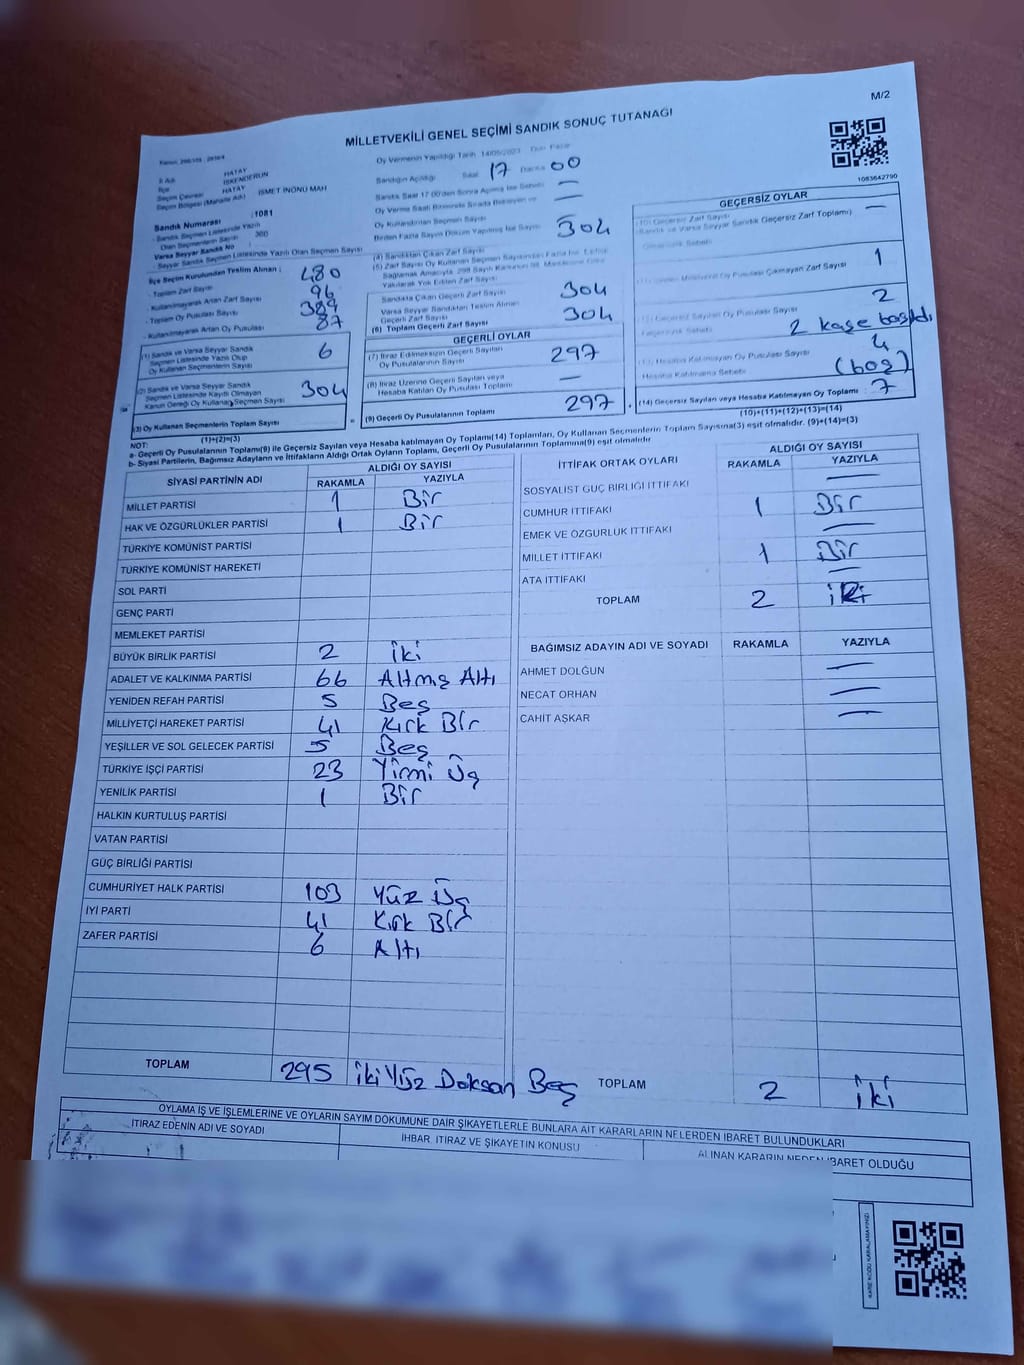 M/2
MİLLETVEKİLİ GENEL SEÇİMİ SANDIK SONUÇ TUTANAĞI
Oy Vermenin Yapıldığı Tarih 14/05/2023 Gün Pazar
Sandığın Açıldığı Saat 17 Dakika 00
1083642790
İl Adı HATAY
İlçe İSKENDERUN
Seçim Çevresi HATAY
Seçim Bölgesi (Mahalle Adı) İSMET İNÖNÜ MAH
Sandık Numarası :1081
Sandık Seçmen Listesinde Yazılı
Olan Seçmenlerin Sayısı
Varsa Seyyar Sandık No
Seyyar Sandık Seçmen Listesinde Yazılı Olan Seçmen Sayısı
İlçe Seçim Kurulundan Teslim Alınan :
- Toplam Zarf Sayısı 480
- Kullanılmayarak Artan Zarf Sayısı 96
- Toplam Oy Pusulası Sayısı
- Kullanılmayarak Artan Oy Pusulası 87
(1) Sandık ve Varsa Seyyar Sandık
Seçmen Listesinde Yazılı Olup
Oy Kullanan Seçmenlerin Sayısı 6
(2) Sandık ve Varsa Seyyar Sandık
Seçmen Listesinde Kayıtlı Olmayan
Kanun Gereği Oy Kullanan Seçmen Sayısı 304
(3) Oy Kullanan Seçmenlerin Toplam Sayısı
(1)+(2)=(3)
Sandık Saat 17.00'den Sonra Açılmış İse Sebebi —
Oy Verme Saati Bitiminde Sırada Bekleyen ve
Oy Kullandırılan Seçmen Sayısı —
Birden Fazla Sayım Döküm Yapılmış İse Sayısı —
304
Sandıkta Çıkan Geçerli Zarf Sayısı 304
Varsa Seyyar Sandıktan Teslim Alınan
Geçerli Zarf Sayısı
(6) Toplam Geçerli Zarf Sayısı 304
GEÇERLİ OYLAR
(7) İtiraz Edilmeksizin Geçerli Sayılan
Oy Pusulalarının Sayısı 297
(8) İtiraz Üzerine Geçerli Sayılan veya
Hesaba Katılan Oy Pusulası Toplamı —
(9) Geçerli Oy Pusulalarının Toplamı 297
GEÇERSİZ OYLAR
(10) Geçersiz Zarf Sayısı
(Sandık ve Varsa Seyyar Sandık Geçersiz Zarf Toplamı) —
Oy Pusulası Çıkmayan Zarf Sayısı 1
Geçersiz Sayılan Oy Pusulası Sayısı 2
2 kaşe basıldı
Hesaba Katılmayan Oy Pusulası Sayısı 4
Hesaba Katılmama Sebebi (boş)
(14) Geçersiz Sayılan veya Hesaba Katılmayan Oy Toplamı : 7
(10)+(11)+(12)+(13)=(14)
NOT:
a- Geçerli Oy Pusulalarının Toplamı(9) ile Geçersiz Sayılan veya Hesaba katılmayan Oy Toplamı(14) Toplamları, Oy Kullanan Seçmenlerin Toplam Sayısına(3) eşit olmalıdır. (9)+(14)=(3)
b- Siyasi Partilerin, Bağımsız Adayların ve İttifakların Aldığı Ortak Oyların Toplamı, Geçerli Oy Pusulalarının Toplamına(9) eşit olmalıdır
SİYASİ PARTİNİN ADI ALDIĞI OY SAYISI
RAKAMLA YAZIYLA
MİLLET PARTİSİ 1 Bir
HAK VE ÖZGÜRLÜKLER PARTİSİ 1 Bir
TÜRKİYE KOMÜNİST PARTİSİ
TÜRKİYE KOMÜNİST HAREKETİ
SOL PARTİ
GENÇ PARTİ
MEMLEKET PARTİSİ
BÜYÜK BİRLİK PARTİSİ 2 iki
ADALET VE KALKINMA PARTİSİ 66 Altmış Altı
YENİDEN REFAH PARTİSİ 5 Beş
MİLLİYETÇİ HAREKET PARTİSİ 41 Kırk Bir
YEŞİLLER VE SOL GELECEK PARTİSİ 5 Beş
TÜRKİYE İŞÇİ PARTİSİ 23 Yirmi Üç
YENİLİK PARTİSİ 1 Bir
HALKIN KURTULUŞ PARTİSİ
VATAN PARTİSİ
GÜÇ BİRLİĞİ PARTİSİ
CUMHURİYET HALK PARTİSİ 103 Yüz Üç
İYİ PARTİ 41 Kırk Bir
ZAFER PARTİSİ 6 Altı
TOPLAM 295 iki Yüz Doksan Beş
İTTİFAK ORTAK OYLARI ALDIĞI OY SAYISI
RAKAMLA YAZIYLA
SOSYALİST GÜÇ BİRLİĞİ İTTİFAKI —
CUMHUR İTTİFAKI 1 Bir
EMEK VE ÖZGÜRLÜK İTTİFAKI —
MİLLET İTTİFAKI 1 Bir
ATA İTTİFAKI —
TOPLAM 2 iki
BAĞIMSIZ ADAYIN ADI VE SOYADI RAKAMLA YAZIYLA
AHMET DOLĞUN —
NECAT ORHAN —
CAHİT AŞKAR —
TOPLAM 2 iki
OYLAMA İŞ VE İŞLEMLERİNE VE OYLARIN SAYIM DÖKÜMÜNE DAİR ŞİKAYETLERLE BUNLARA AİT KARARLARIN NELERDEN İBARET BULUNDUKLARI
İTİRAZ EDENİN ADI VE SOYADI
İHBAR, İTİRAZ VE ŞİKAYETİN KONUSU
ALINAN KARARIN NEDEN İBARET OLDUĞU
KARE KODU KARALAMAYINIZ!